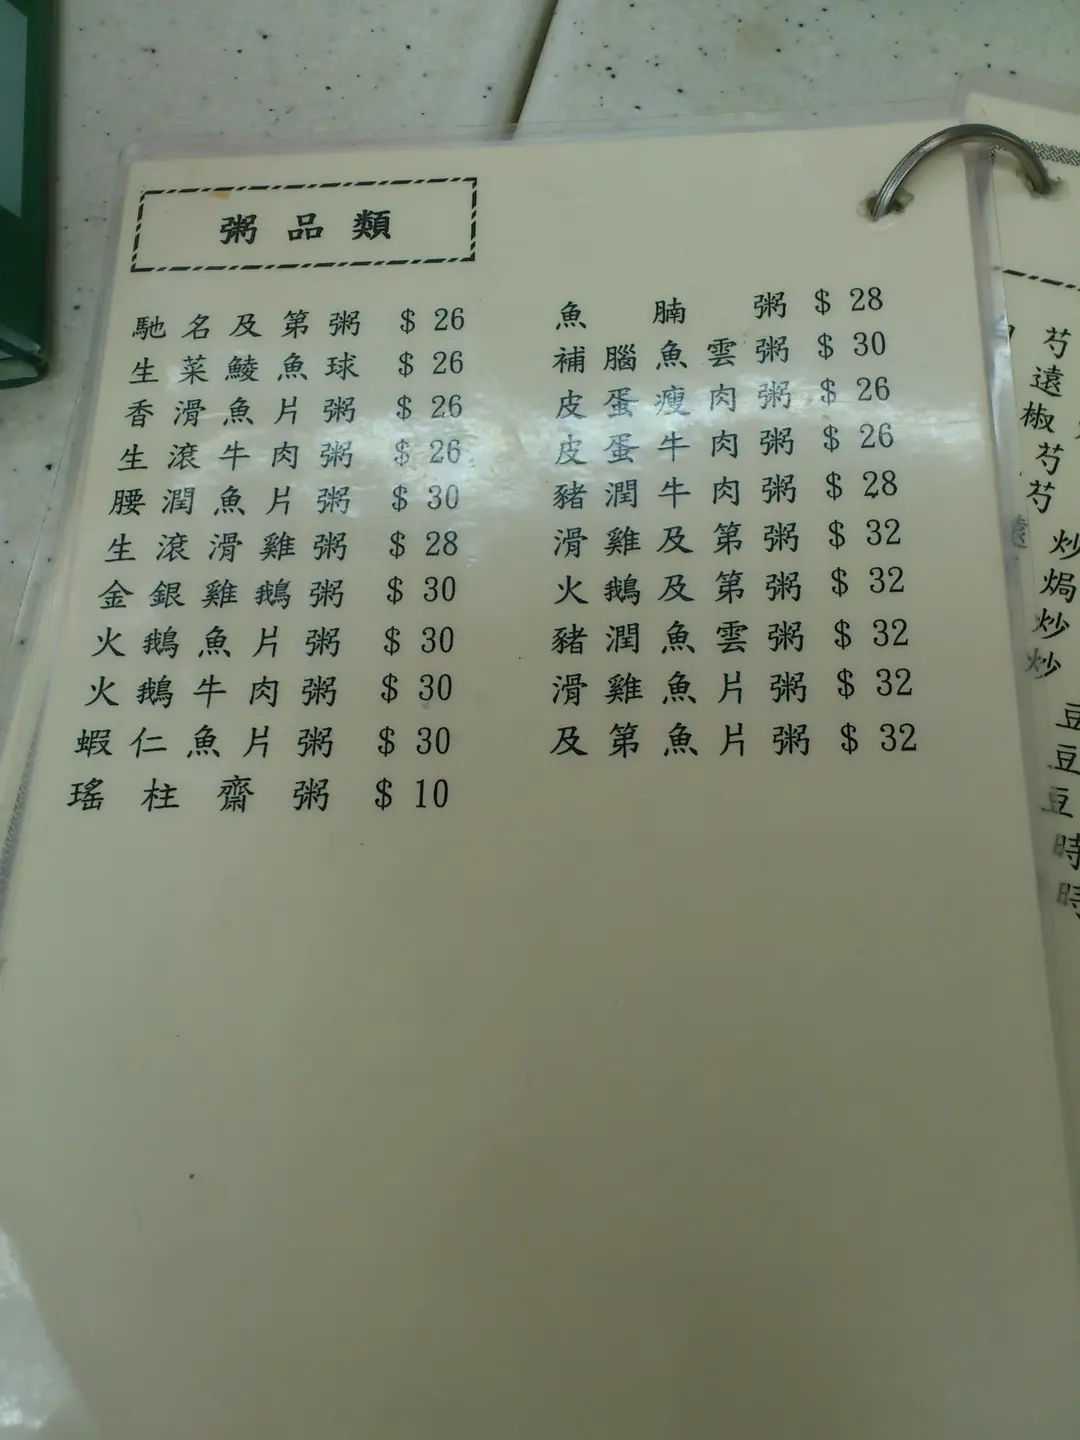 粥品類
馳名及第粥 $ 26
生菜鯪魚球 $ 26
香滑魚片粥 $ 26
生滾牛肉粥 $ 26
腰潤魚片粥 $ 30
生滾滑雞粥 $ 28
金銀雞鵝粥 $ 30
火鵝魚片粥 $ 30
火鵝牛肉粥 $ 30
蝦仁魚片粥 $ 30
瑤柱齋粥 $ 10
魚腩粥 $ 28
補腦魚雲粥 $ 30
皮蛋瘦肉粥 $ 26
皮蛋牛肉粥 $ 26
豬潤牛肉粥 $ 28
滑雞及第粥 $ 32
火鵝及第粥 $ 32
豬潤魚雲粥 $ 32
滑雞魚片粥 $ 32
及第魚片粥 $ 32
芍
遠
椒
芍
芍
炒
焗
炒
炒
豆
豆
豆
時
時